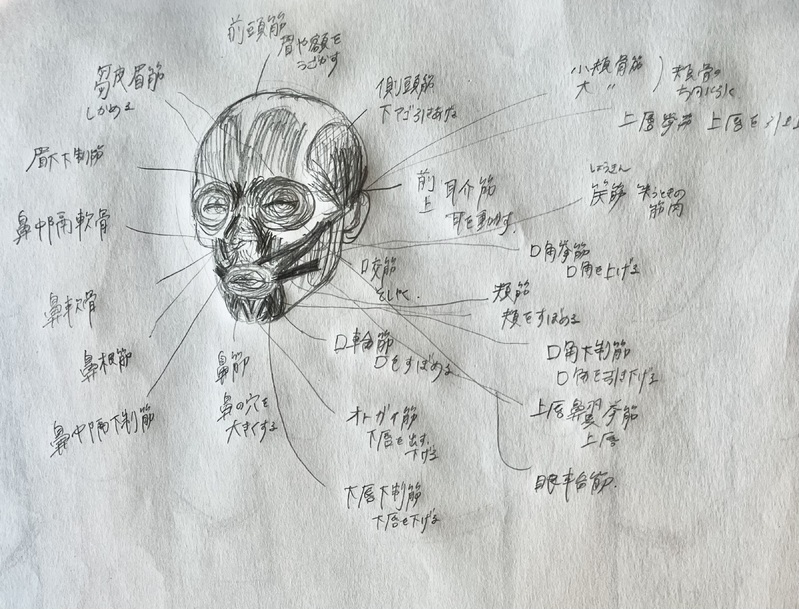 前頭筋
眉や額を
うごかす
皺皮眉筋
しかめる
側頭筋
下アゴ引きあげる
小頬骨筋
大 〃
頬骨の
上唇挙筋 上唇を引上
眉下下制筋
前
上
耳介筋
耳を動かす。
しょうきん
笑筋 笑うときの
筋肉
鼻中隔軟骨
口角挙筋
口角を上げる
咬筋
そしゃく.
頬筋
頬をすぼめる
鼻軟骨
口輪筋
口をすぼめる
口角下制筋
口角を引き下げる
鼻根筋
鼻筋
鼻の穴を
大きくする
鼻中隔下制筋
オトガイ筋
下唇を出す.
下げる
上唇鼻翼挙筋
上唇
眼輪筋.
下唇下制筋
下唇を下げる